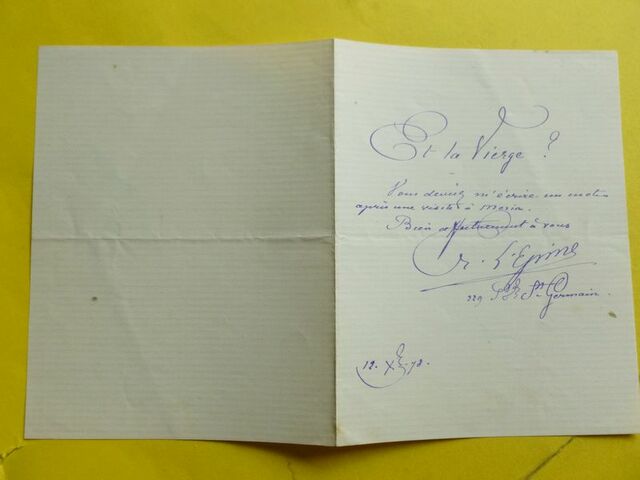 Et la Vierge ?
Vous deviez m'écrire un mot
après une visite à
Bien affectueusement à vous
L'Epine
229 Bd St Germain.
12. Xe 78.